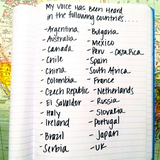 My voice has been Heard
in the following countries....
-Argentina
-Australia
-Canada
-Chile
-China
-Columbia
-Czech Republic
-El Salvador
-Italy
-Ireland
-Brazil
-Serbia
-Bulgaria
-Mexico
-Peru -Costa Rica
-Spain
-South Africa
-France
-Netherlands
-Russia
-Slovakia
-Portugal
-Japan
-UK